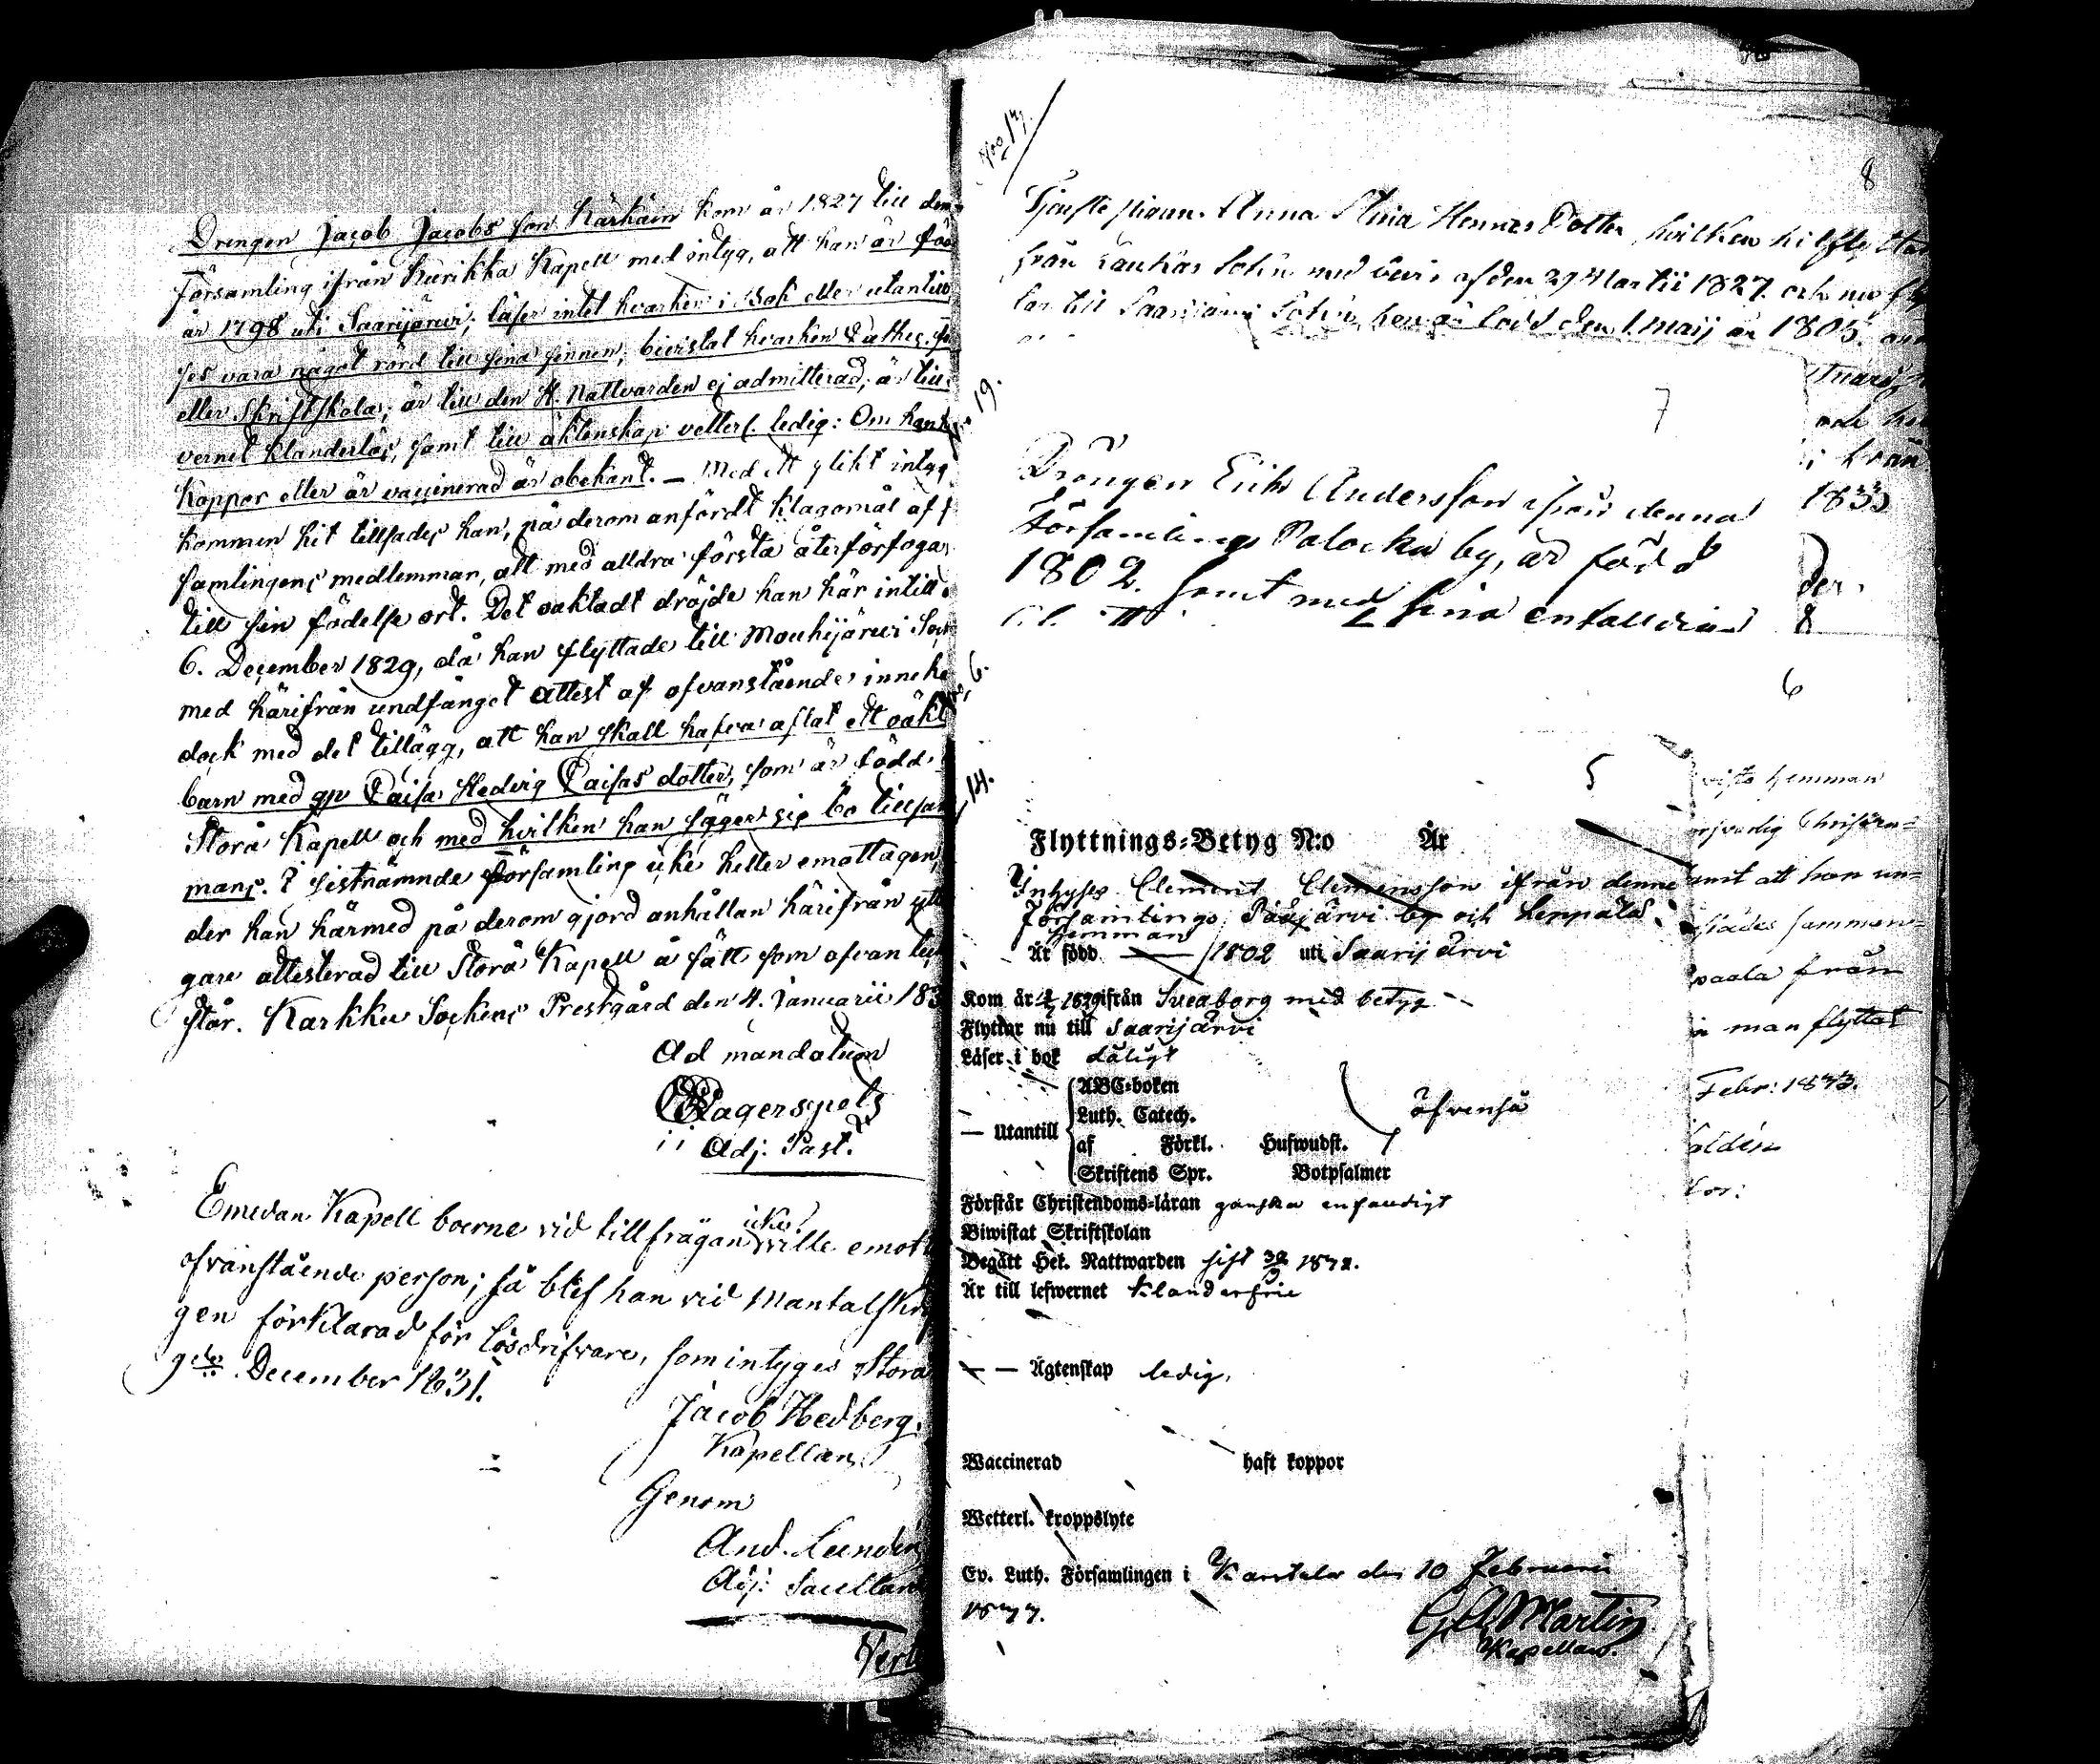 Drengen Jacob Jacobs son Kärkäin kom år 1827 till den
församling ifrån Kurikka Kapell med intyg, att han är föd
år 1798 uti Saarijärvi; läser intet hvarken i Bok eller utantill,
ses vara något rörd till sina sinnen; bevistat hvarken Catheg. för
eller Skriftskola; är till den H. Nattvarden ej admitterad; är till
vernet klanderlös, samt till äktenskap vetterl. ledig: Om han h
Koppor eller är vaccinerad är obekant. – Med ett slikt intyg
kommen hit tillsades han, på derom anfördt klagomål af f
samlingens medlemmar, att med alldra första återförfoga
till sin födelse ort. Det oaktadt dröjde han här intill
6. December 1829, då han flyttade till Mouhijärvi Sock
med härifrån undfånget attest af ofvanstående inneha
dock med det tillägg, att han skall hafva aflat ett oäkt
barn med gp Caisa Hedvig Caisas dotter, som är född
Storå Kapell och med hvilken han säger sig bo tillsam
mans. I sistnämnde församling icke heller emottagen,
der han härmed på derom gjord anhållan härifrån ytt
gare attesterad till Storå Kapell å sätt som ofvan teck
står. Karkku Sockens Prestgård den 4. Januarii 183
Ad mandatum
Lagerspets
Adj. Past.
Emedan Kapell boerne vid tillfrågan icke ville emott
ofvanstående person; så blef han vid Mantalskrif
gen förklarad för lösdrifvare, som intyges Storå
9de December 1831.
Jacob Hedberg.
Kapellan
Genom
And. Lundén
Adj. Sacellan
Vert
No 17.
8
Tjenste pigan Anna Stina Hennes Dotter, hvilken hit flyttat
från Laukas Sokn med bevis af den 29 Martii 1827. och nu fly
tar till Saarijärvi Sokn, hon är född den 1. Maij år 1805.
19.
7
1833
Drängen Erik Andersson ifrån denna
Församlings Palocka by, är född
1802. samt med sina enfalldiga
der
8
6.
6
14.
5
Flyttnings-Betyg N:o År
Inhyses Clement Clemensson ifrån denne
Församlings Pääjärvi by och Leppälä
hemman
Är född 1802 uti Saarijärvi
Kom år 1829 ifrån Sveaborg med betyg
Flyttar nu till Saarijärvi
Läser i bok dåligt
— Utantill
ABC-boken
Luth. Catech.
af Förkl. Hufwudst.
Skriftens Spr. Botpsalmer
äfvenså
Förstår Christendoms-läran ganska enfaldigt
Biwistat Skriftskolan
Begått Hel. Nattwarden sist 1872.
Är till lefwernet klanderfrie
— — Ägtenskap ledig.
Waccinerad haft koppor
Wetterl. kroppslyte
Ev. Luth. Församlingen i Karstula den 10 Februarii
1877.
G A Martin
Kapellan.
hemman
Christen=
samt att han un=
sammon=
från
man flyttat
Febr: 1873.